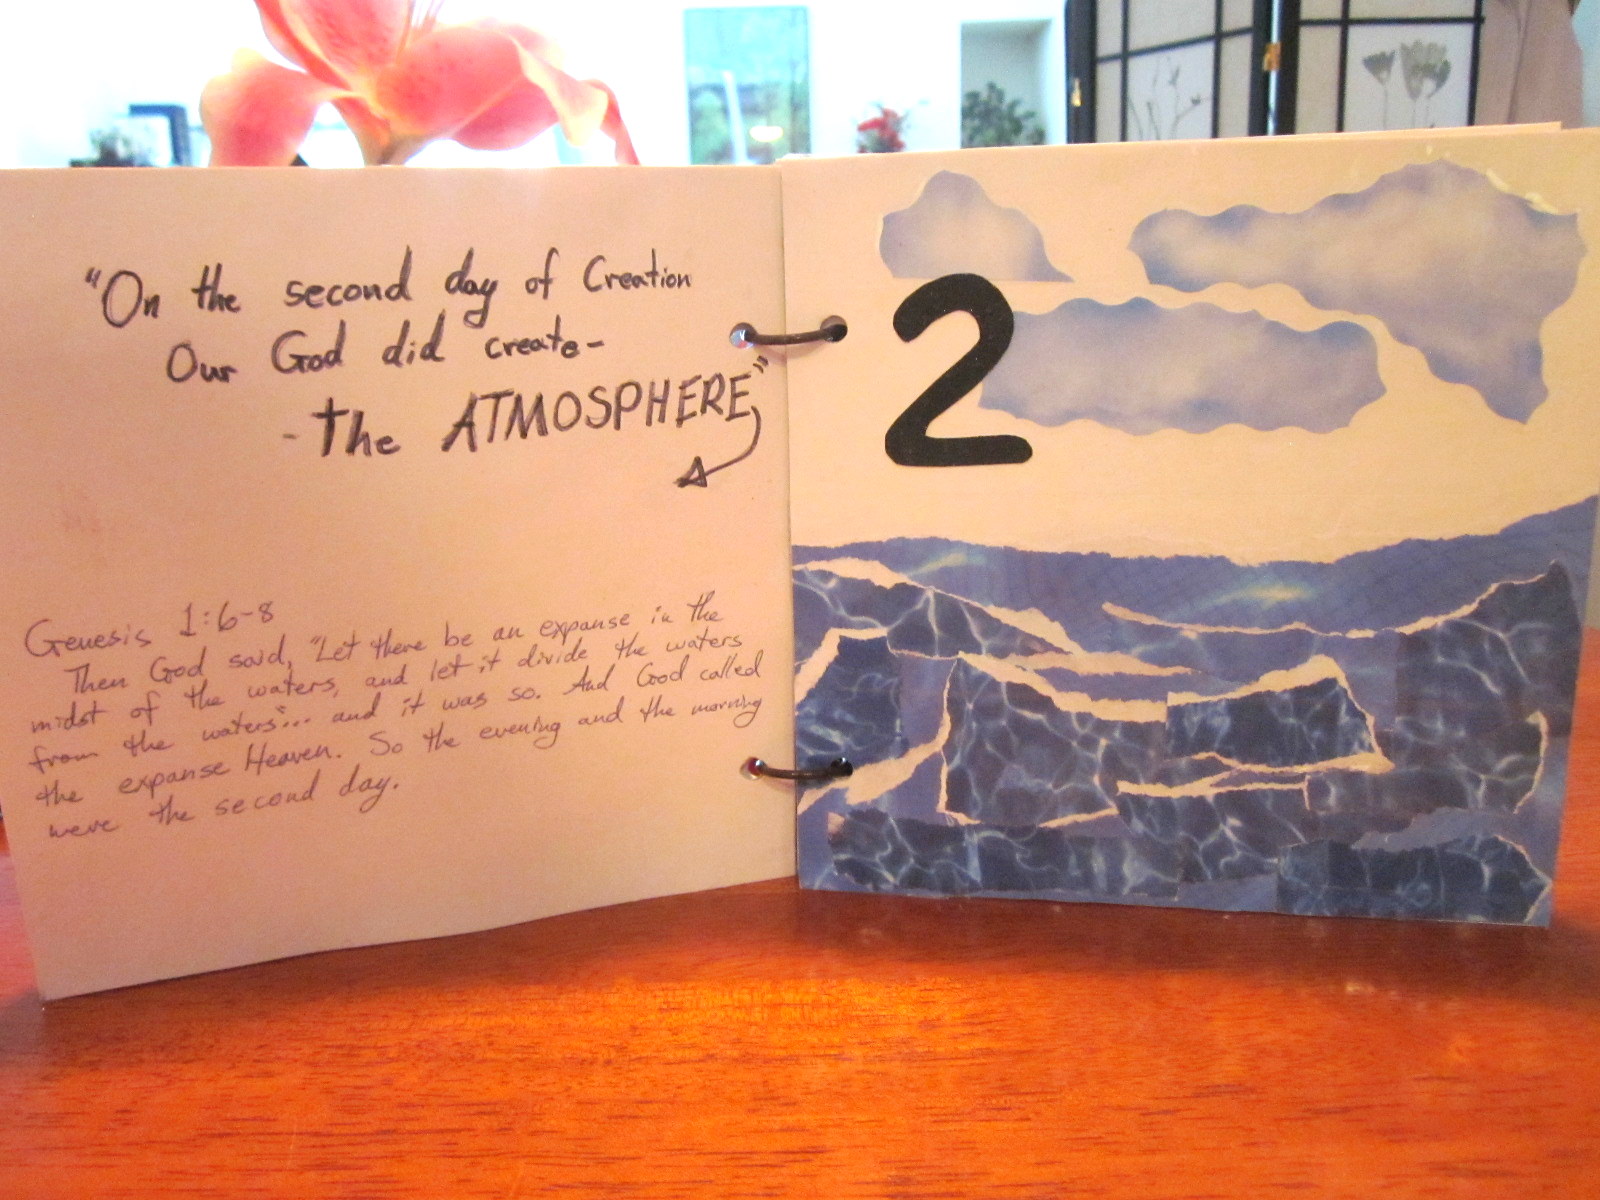 "On the second day of Creation
Our God did create-
-the ATMOSPHERE"
Genesis 1:6-8
Then God said, "Let there be an expanse in the
midst of the waters, and let it divide the waters
from the waters"... and it was so. And God called
the expanse Heaven. So the evening and the morning
were the second day.
2